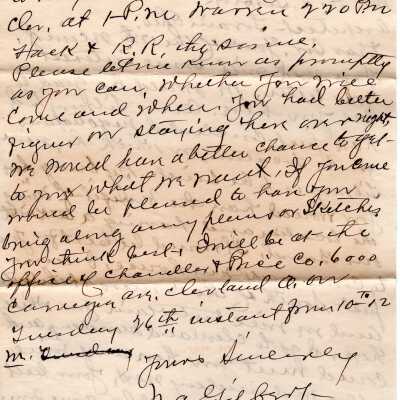 Clev. at 1 P.M. Warren 220 PM
Hack & R.R. the same.
Please let me know as promptly
as you can, whether you will
come and when. You had better
figure on staying here over night,
we would have a better chance to get
to you what we want. If you come
would be pleased to have you
bring along any plans or sketches
you think best, I will be at the
office of Chandler & Price Co. 6000
Carnegie av. Cleveland O. on
Tuesday 26th instant from 10 to 12
M.
Yours Sincerely